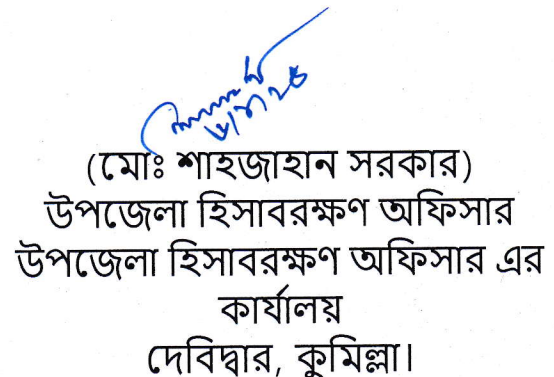 (মোঃ শাহজাহান সরকার)
উপজেলা হিসাবরক্ষণ অফিসার
উপজেলা হিসাবরক্ষণ অফিসার এর
কার্যালয়
দেবিদ্বার, কুমিল্লা।